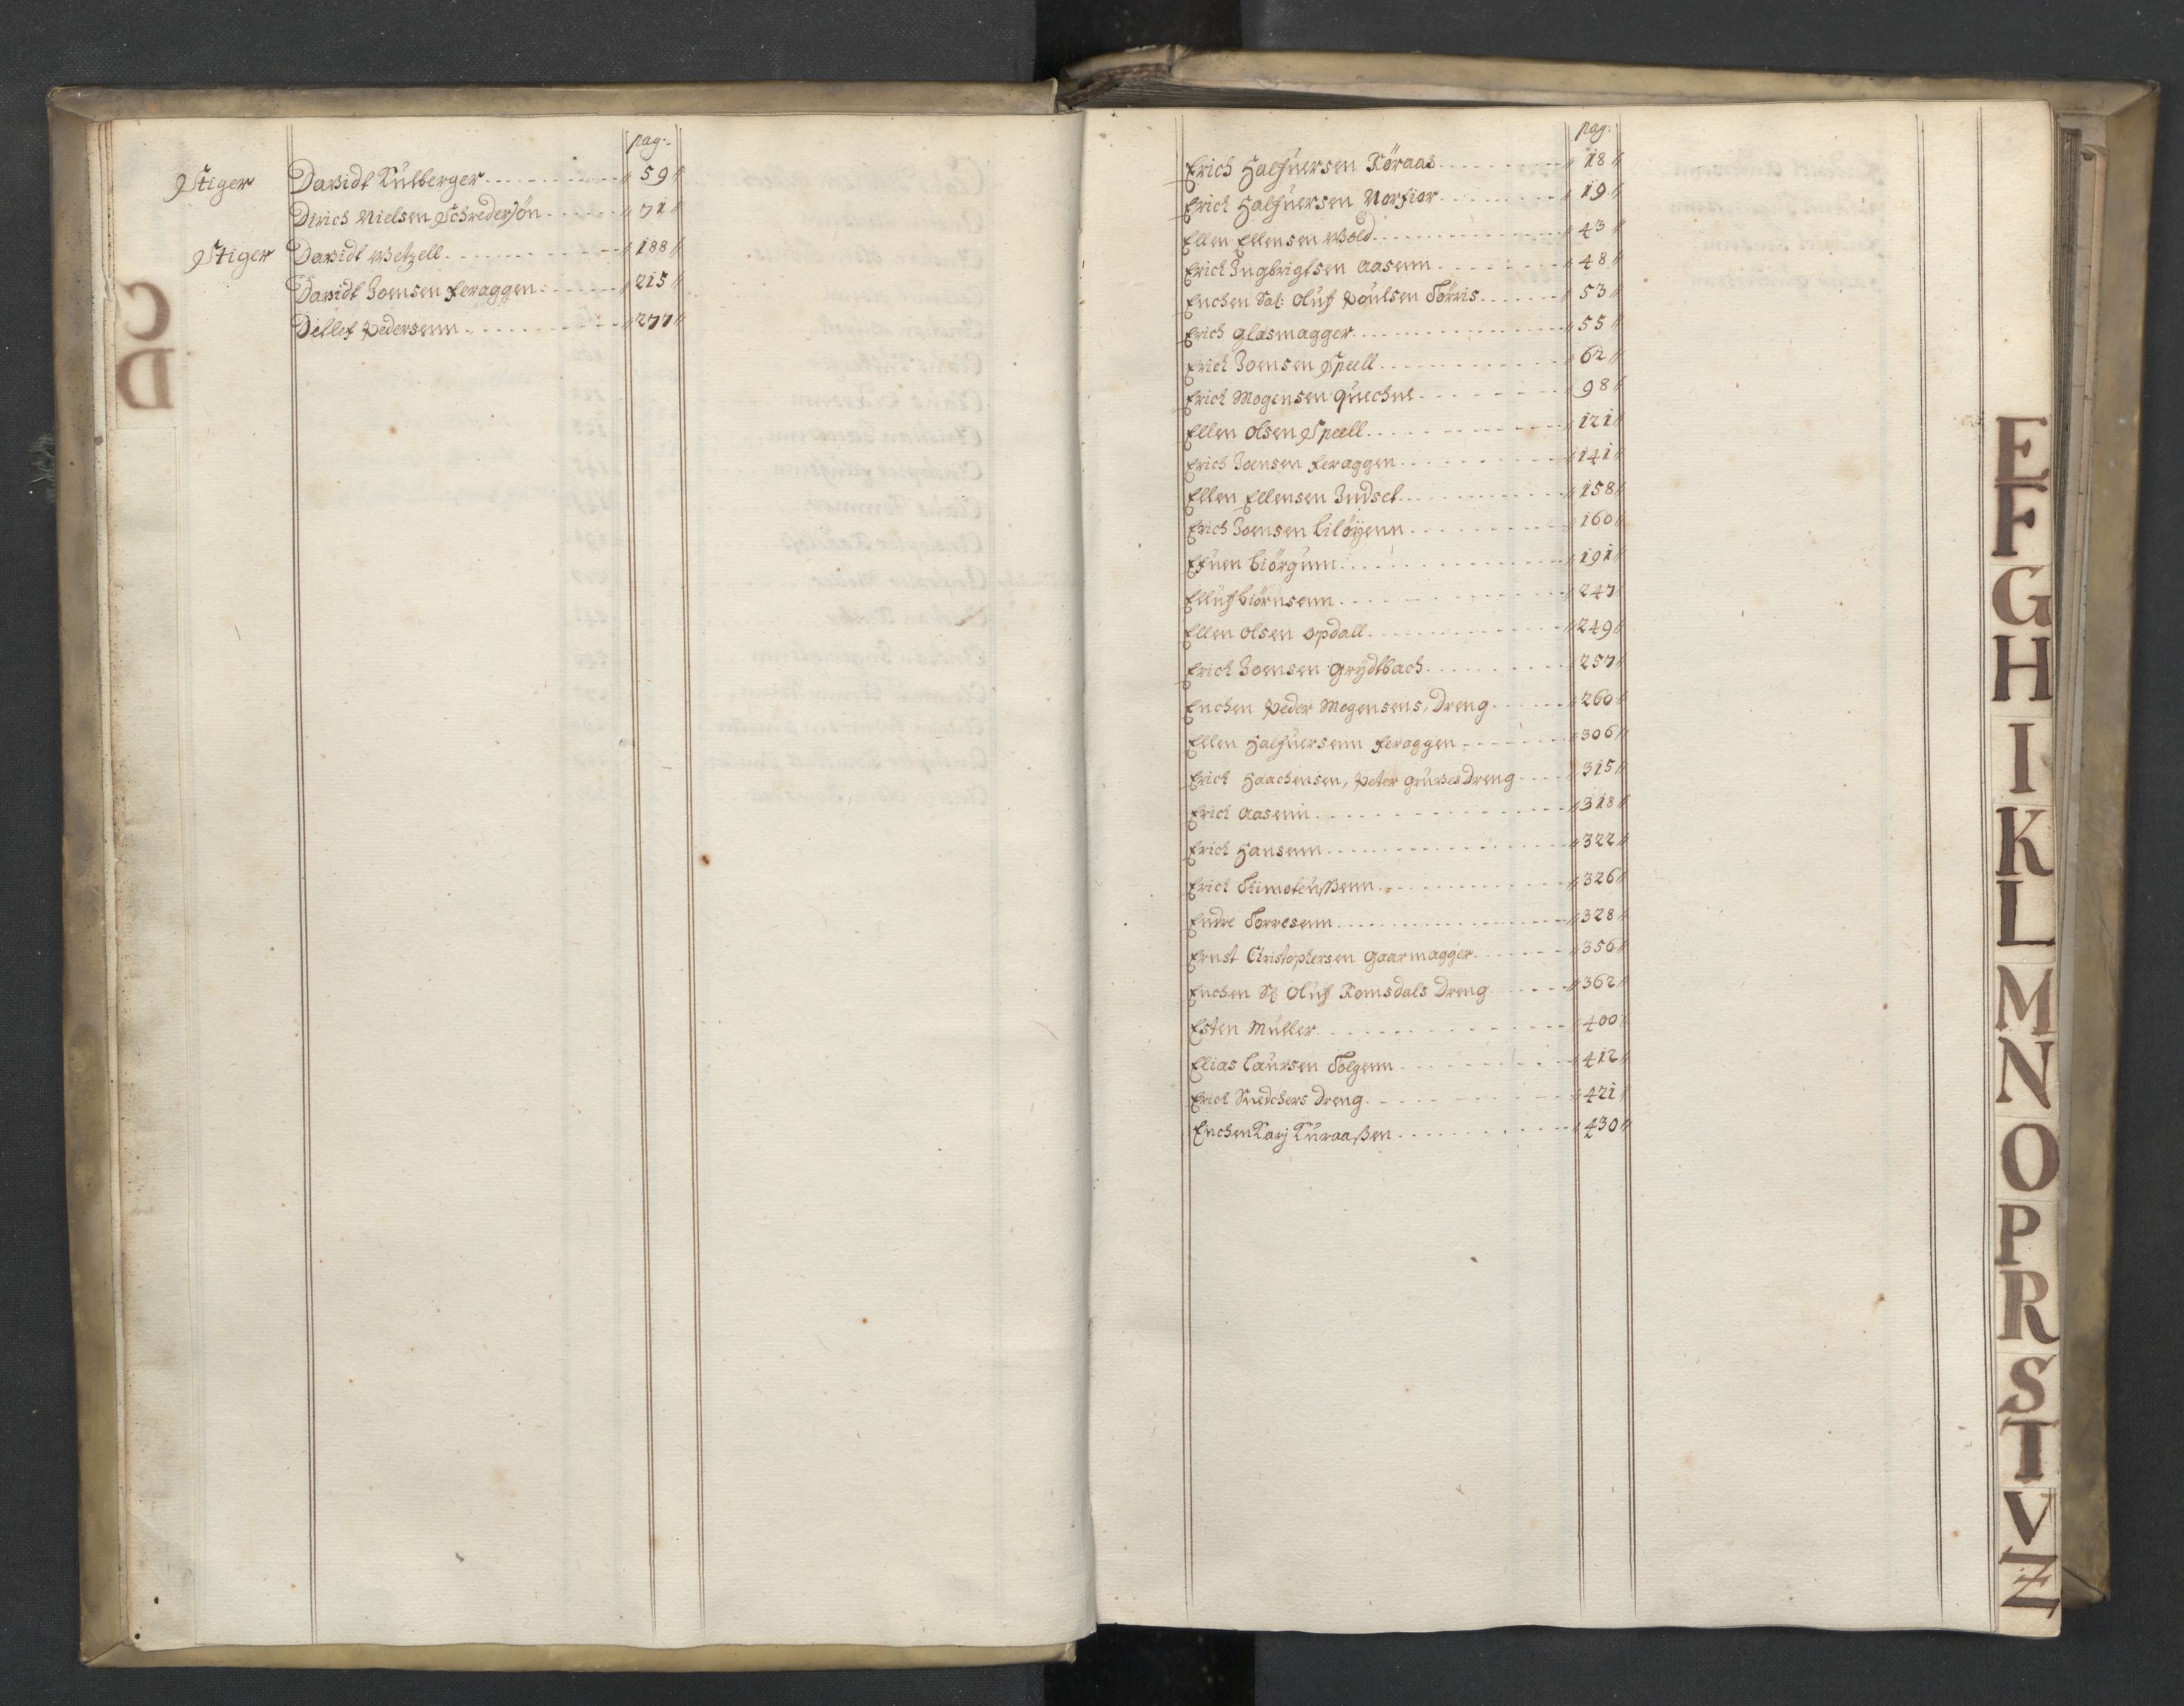 pag:
Stiger Davidt Kulberger 59
Dirich Nielsen Schredersøn 71
Stiger Davidt Wetzell 188
Davidt Joensen Feraggen 215
Detlef Pedersenn 277
C
D
pag:
Erich Halfuersen Röraas 18
Erich Halfuersen Norfior 19
Ellen Ellensen Wold 43
Erich Ingbrigtsen Aasenn 48
Enchen Sal: Oluf Poulsen Törris 53
Erich Glasmagger 55
Erich Joensen Speell 62
Erich Mogensen Quechne 98
Ellen Olsen Speell 121
Erich Joensen Feraggen 141
Ellen Ellensen Indset 158
Erich Joensen Liløyenn 160
Efuen Biörgum 191
Elluf Biörnsenn 247
Ellen Olsen Opdall 249
Erich Joensen Grydtbach 257
Enchen Peder Mogensens, Dreng 260
Ellen Halfuersenn Feraggen 306
Erich Haachensen, Peter Gruwes Dreng 315
Erich Aasenn 318
Erich Hansenn 322
Erich Timoteussenn 326
Endre Torresenn 328
Ernst Christophersen Gaarmagger 356
Enchen Sl: Oluf Romsdals Dreng 362
Esten Müller 400
Elias Laursen Tolgenn 412
Erich Snedchers Dreng 421
Enchen Karj Kuraassen 430
E
F
G
H
I
K
L
M
N
O
P
R
S
T
V
Z